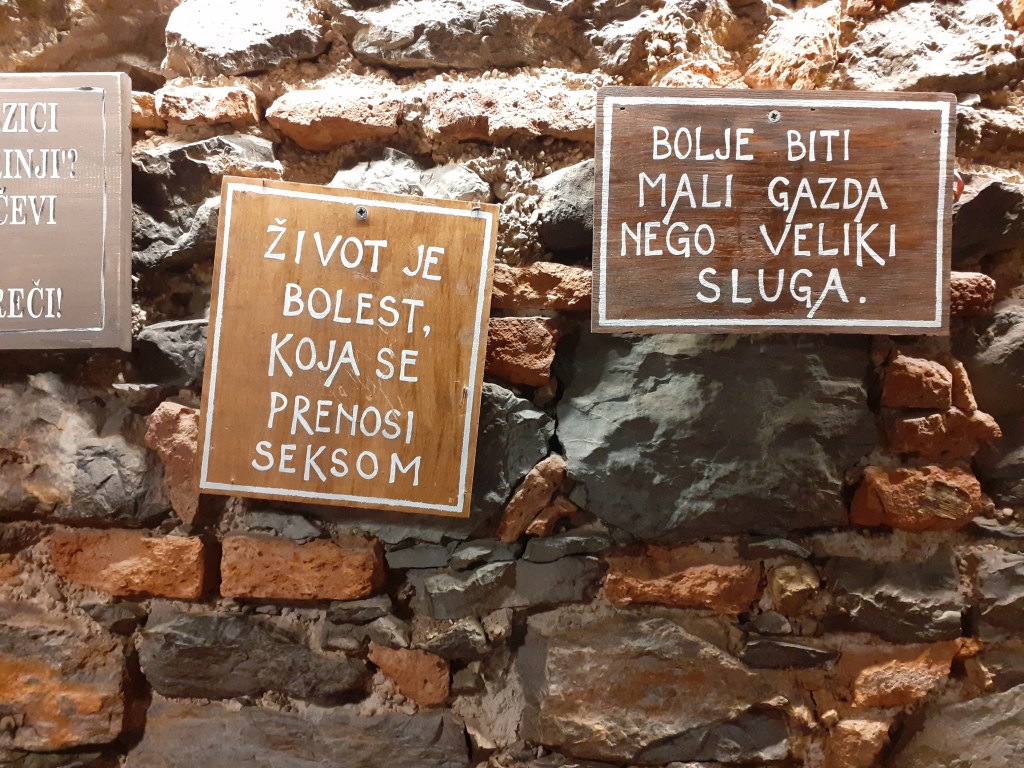 ČEVI
REČI!
ŽIVOT JE
BOLEST,
KOJA SE
PRENOSI
SEKSOM
BOLJE BITI
MALI GAZDA
NEGO VELIKI
SLUGA.